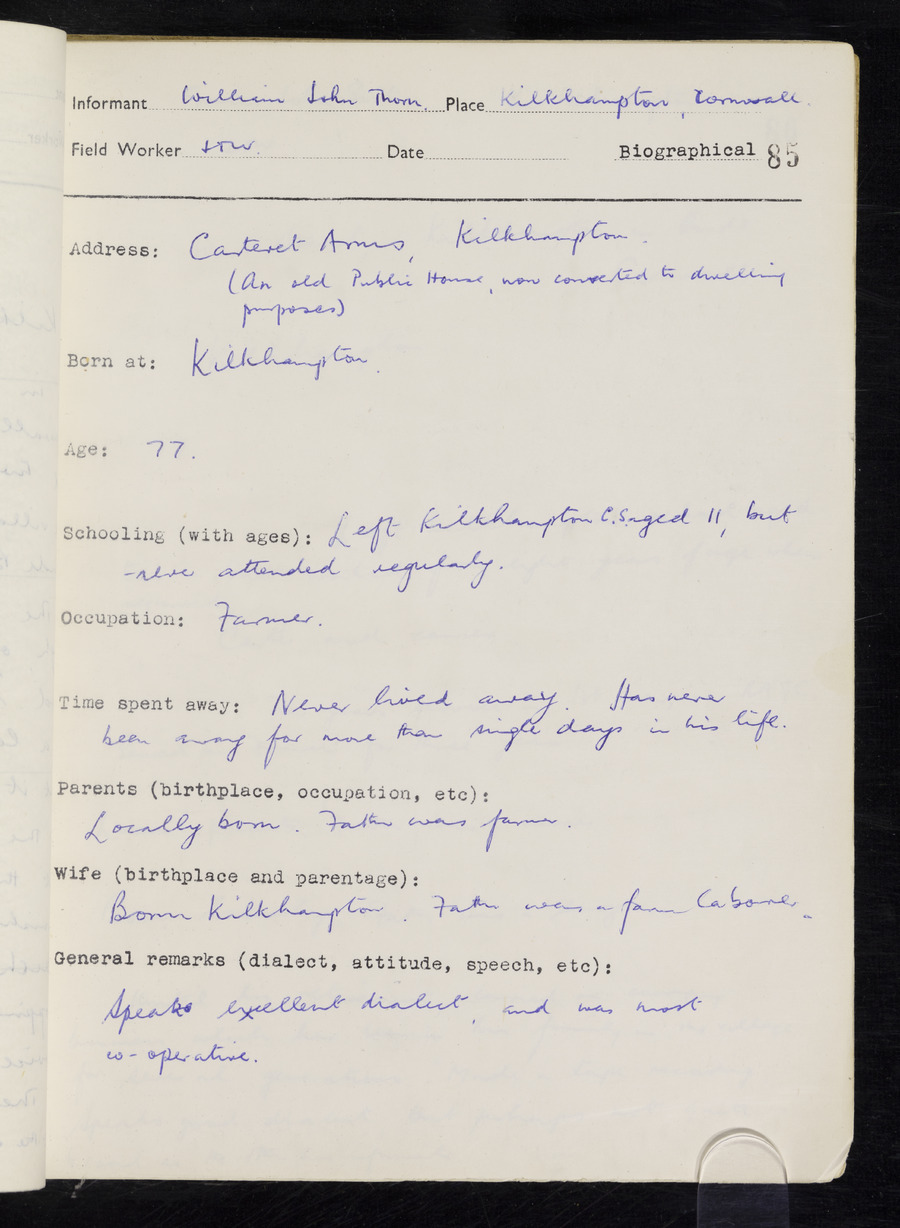 Informant William John Thorn. Place Kilkhampton, Cornwall.
Field Worker Date Biographical 85
Address: Carteret Arms, Kilkhampton.
(An old Public House, now converted to dwelling
purposes)
Born at: Kilkhampton.
Age: 77.
Schooling (with ages): Left Kilkhampton C.S. aged 11, but
never attended regularly.
Occupation: Farmer.
Time spent away: Never lived away. Has never
been away for more than single days in his life.
Parents (birthplace, occupation, etc):
Locally born. Father was farmer.
Wife (birthplace and parentage):
Born Kilkhampton. Father was a farm labourer.
General remarks (dialect, attitude, speech, etc):
Speaks excellent dialect, and was most
co-operative.